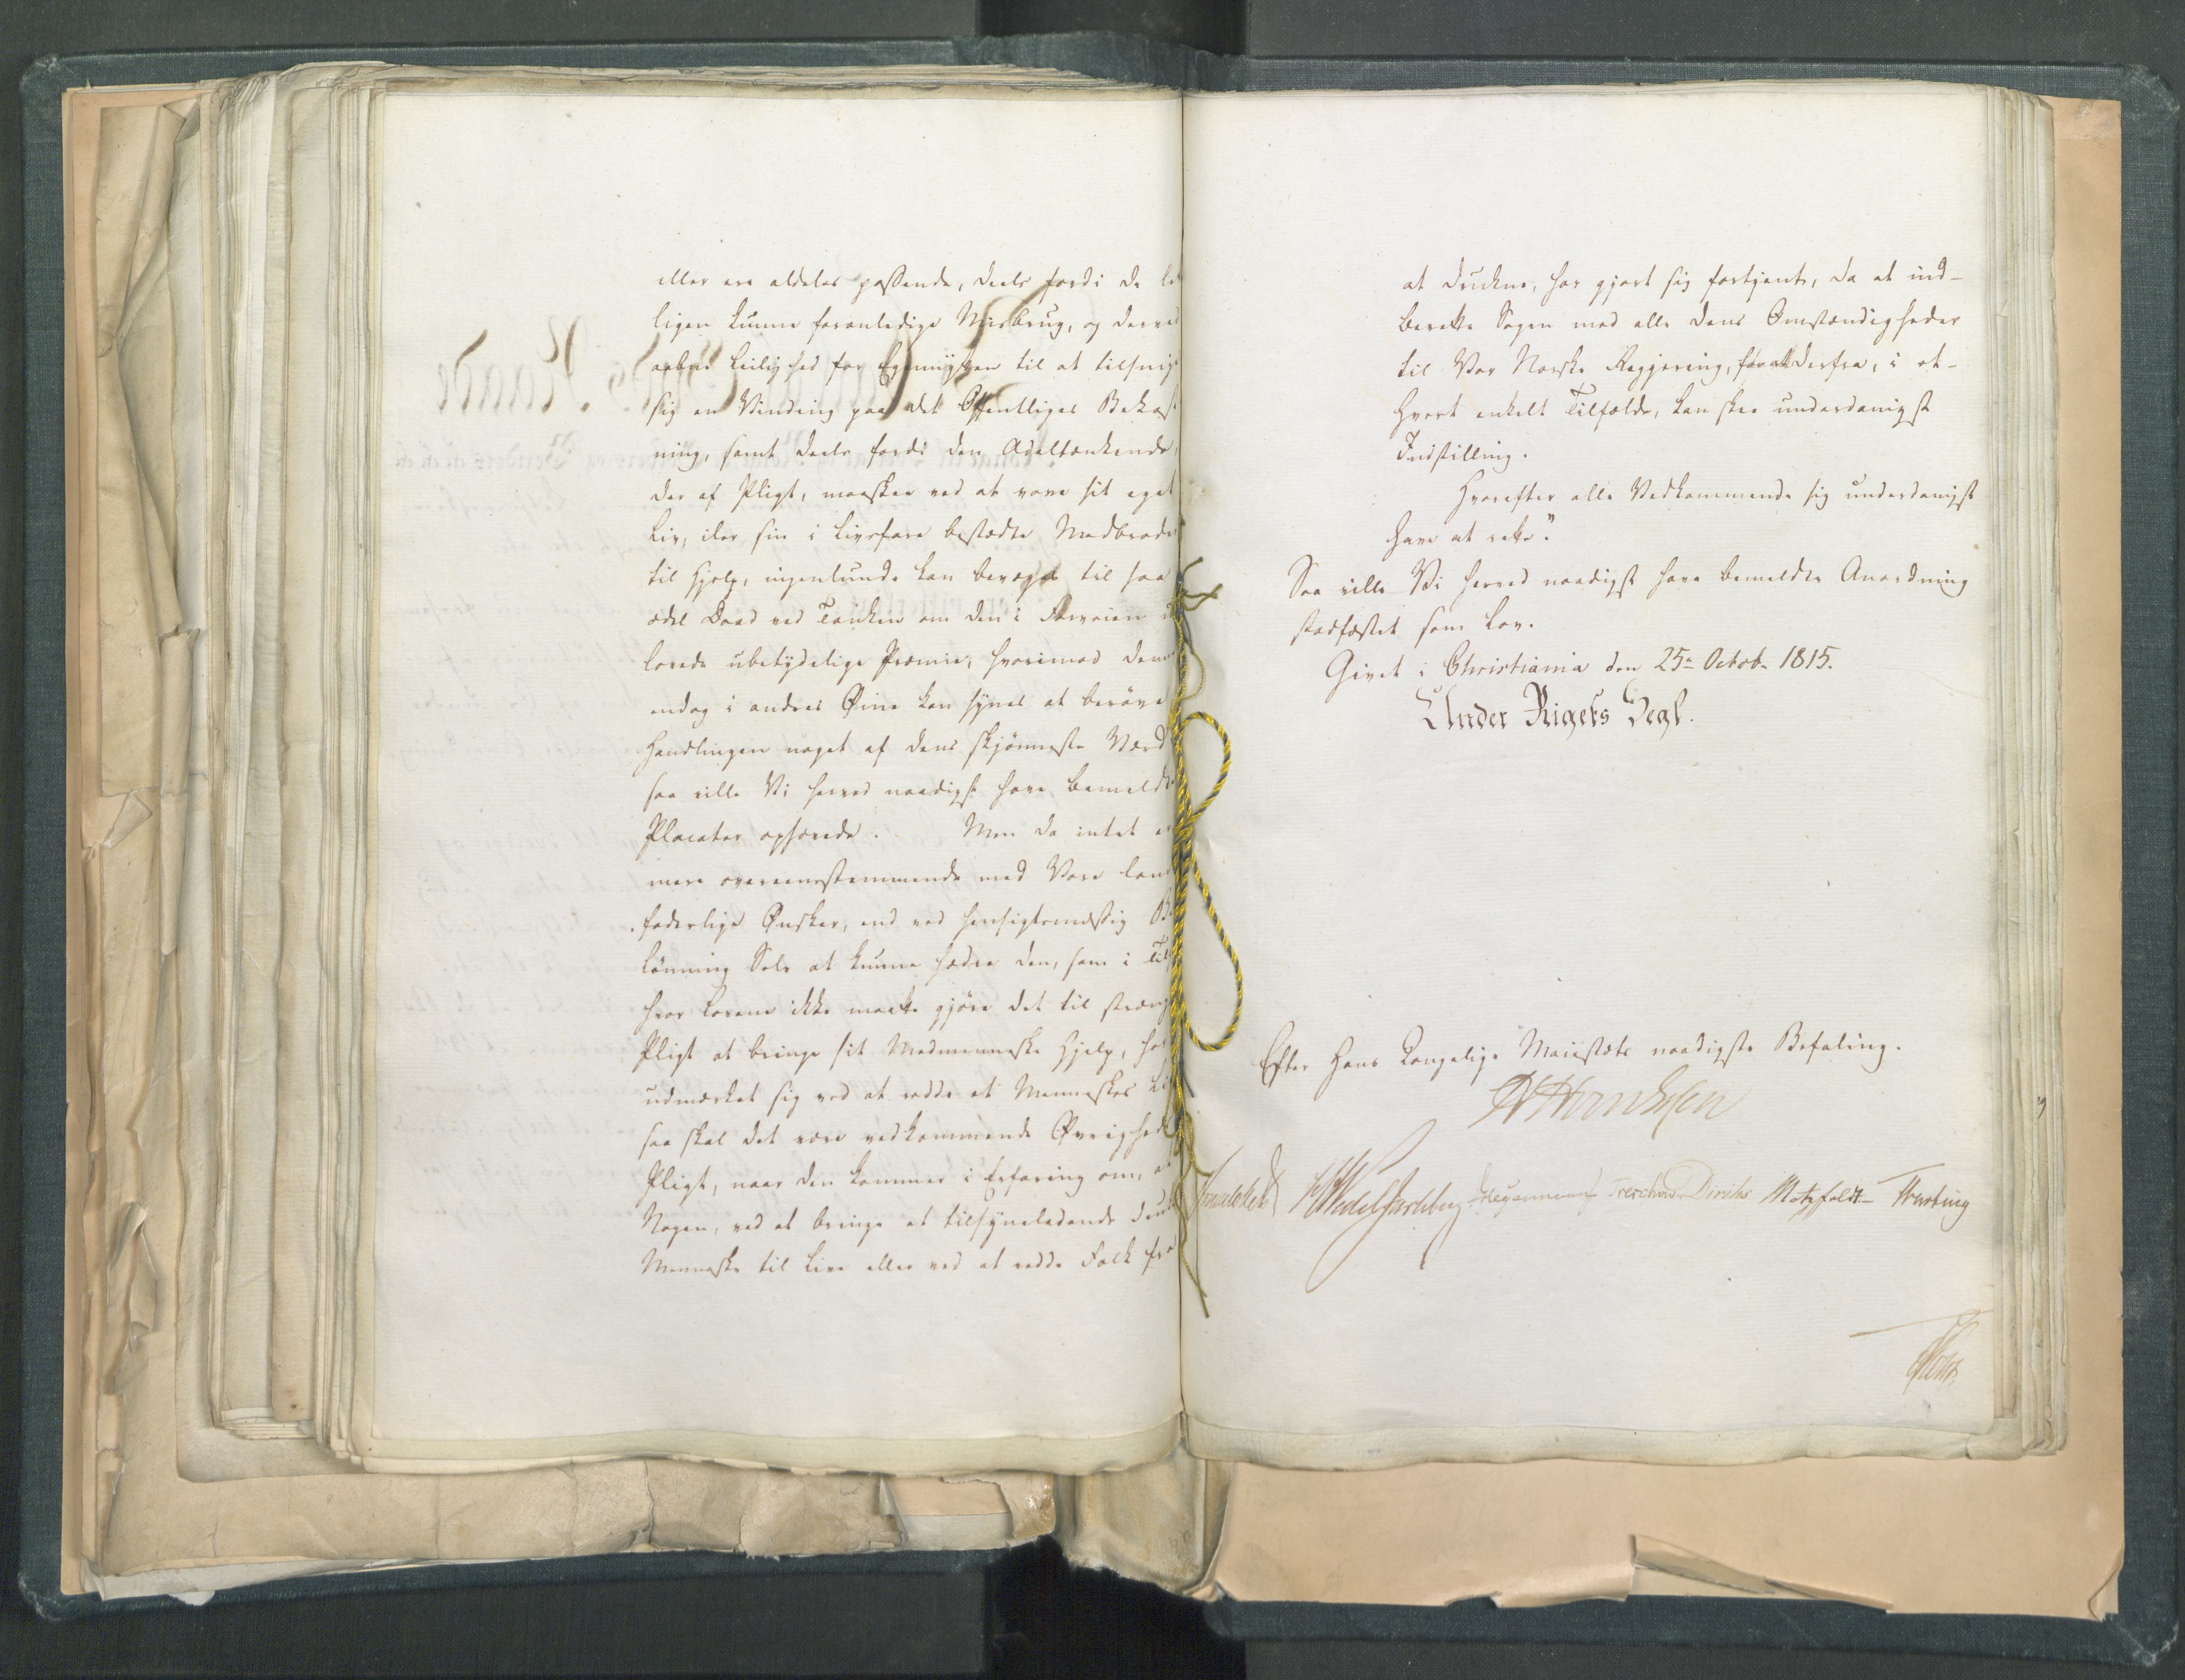 eller ere aldeles passende, deels fordi de let
ligen kunne foranledige Misbrug, og derved
aabne Leilighed for Egennytten til at tilsnige
sig en Vinding paa det Offentliges Bekost
ning, samt deels fordi den Ædeltænkende,
der af Pligt, maaskee ved at vove sit eget
Liv, iler sin i Livsfare bestædte Medbroder
til Hjelp, ingenlunde kan bevæges til saa
ædel Daad ved Tanken om den i Forveien
lovede ubetydelige Præmie, hvorimod denne
endog i andres Øine kan synes at beröve
Handlingen noget af dens skjönneste Værd
saa ville Vi herved naadigst have bemeldte
Placater ophævede. Men da intet er
mere overeensstemmende med Vore land
faderlige Ønsker, end ved hensigtsmæssig Be
lönning Selv at kunne hædre den, som i Til
hvor Lovene ikke maatte gjöre det til streng
Pligt at bringe sit Medmenneske Hjelp, har
udmærket sig ved at redde et Menneskes Liv
saa skal det være vedkommende Øvrigheds
Pligt, naar den kommer i Erfaring om, at
Nogen, ved at bringe et tilsyneladende dendt
Menneske til Live eller ved at redde Folk fra
at drukne, har gjort sig fortjent, da at ind-
berette Sagen med alle dens Omstændigheder
til Vor Norske Regjering, for at derfra, i et-
hvert enkelt Tilfælde, kan skee underdanigst
Indstilling.
Hvorefter alle Vedkommende sig underdanigst
have at rette."
Saa ville Vi herved naadigst have bemeldte Anordning
stadfæstet som Lov.
Givet i Christiania den 25de Octob. 1815.
Under Rigets Segl.
Efter Hans Kongelige Maiestæts naadigste Befaling.
Wedel Jarlsberg Hegermann Treschow Diriks Motzfeldt Krebting